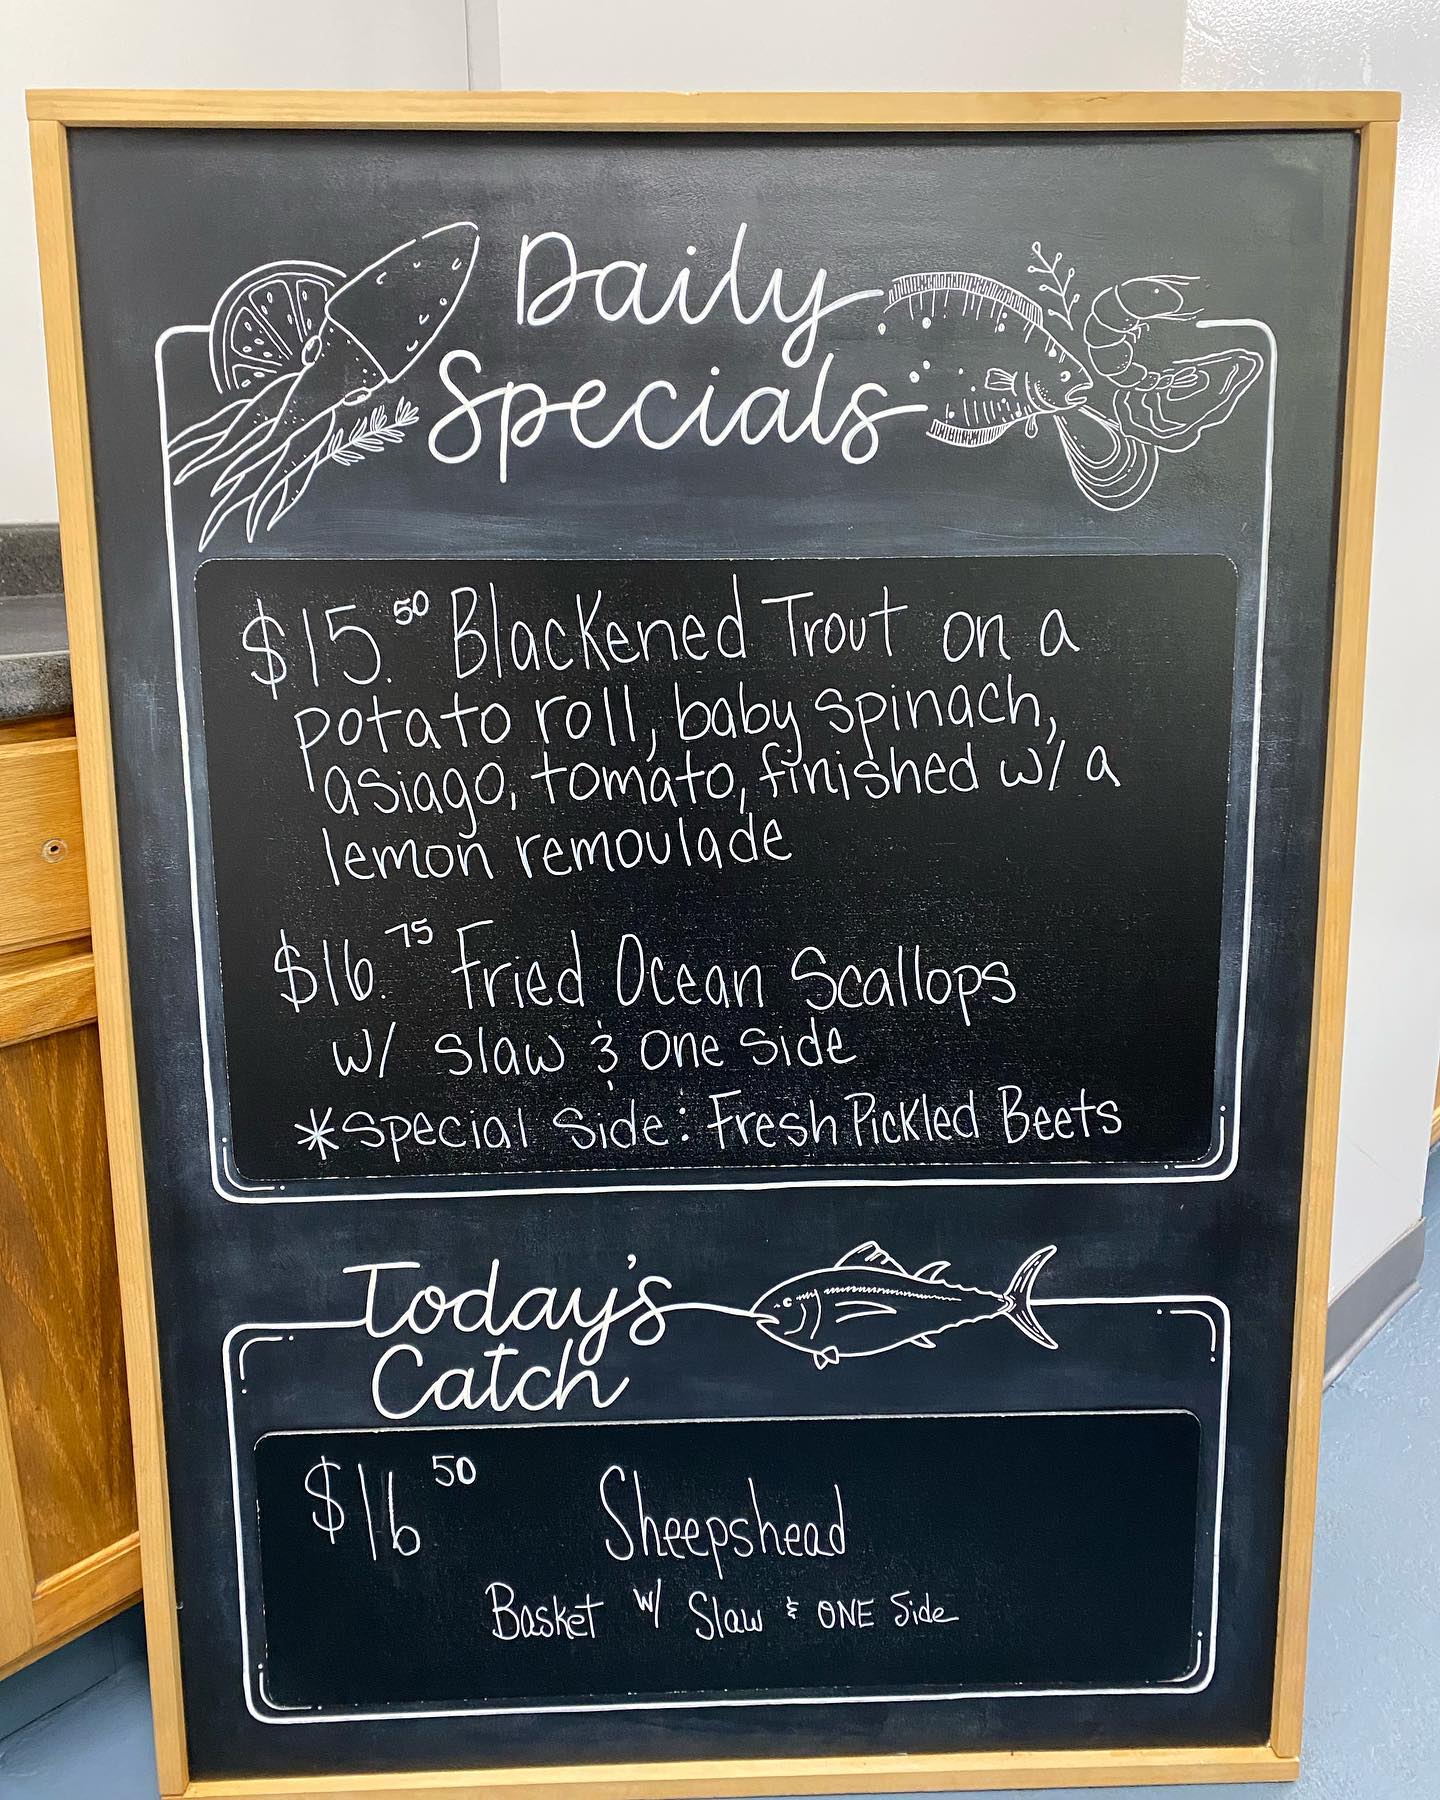 Daily
Specials
$15.50 Blackened Trout on a
potato roll, baby spinach,
asiago, tomato, finished w/ a
lemon remoulade
$16.75 Fried Ocean Scallops
w/ slaw & one side
*Special Side: Fresh Pickled Beets
Today's
Catch
$16 50 Sheepshead
Basket w/ Slaw & ONE Side